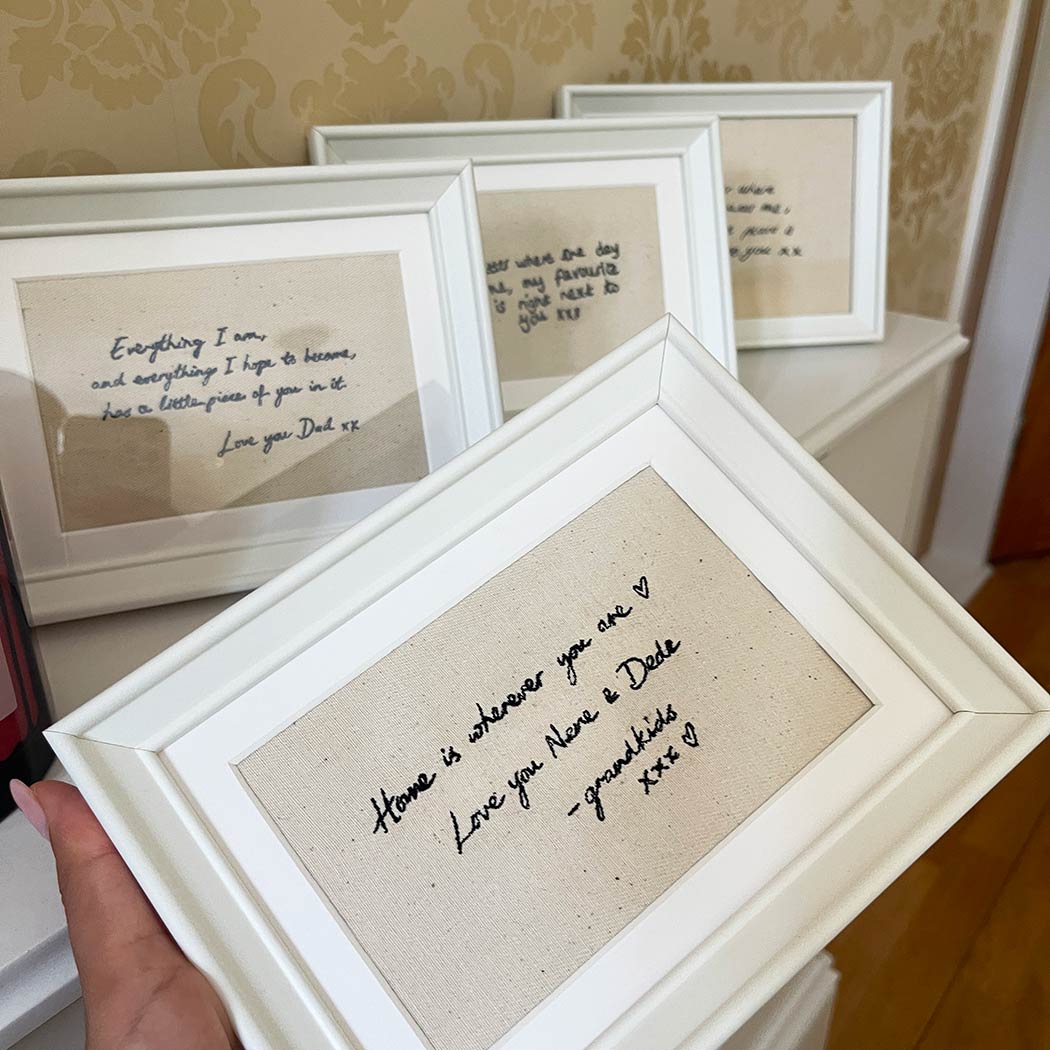 Everything I am,
and everything I hope to become,
has a little piece of you in it.
Love you Dad xx
where one day
me, my favourite
is right next to
you xxx
where
me,
you xx
Home is wherever you are ♡
Love you Nene & Dede
-grandkids
xxx ♡